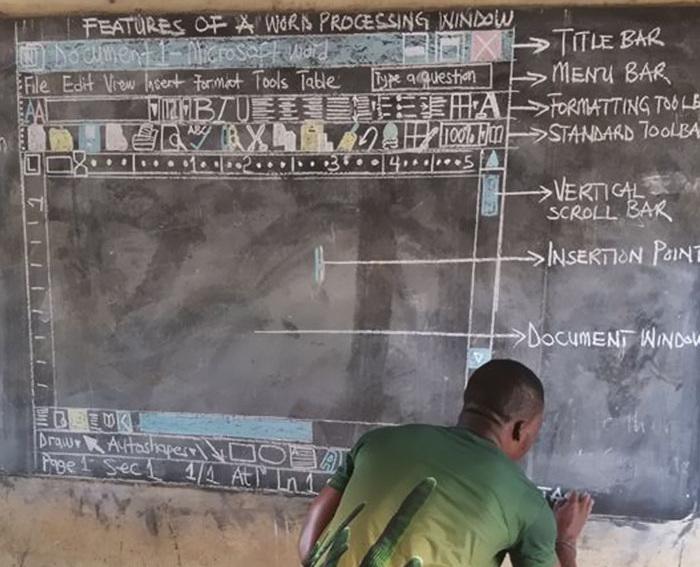 FEATURES OF A WORD PROCESSING WINDOW
W Document 1 - Microsoft word
TITLE BAR
File Edit View Insert Format Tools Table
Type a question
MENU BAR
AA
B I U
A
FORMATTING TOOLB
ABC
100%
STANDARD TOOLBA
L
1 2 3 4 5
1
VERTICAL
SCROLL BAR
INSERTION POINT
DOCUMENT WINDOW
Draw Autoshapes
A
Page 1 Sec 1 1/1 At 1" Ln 1
STA